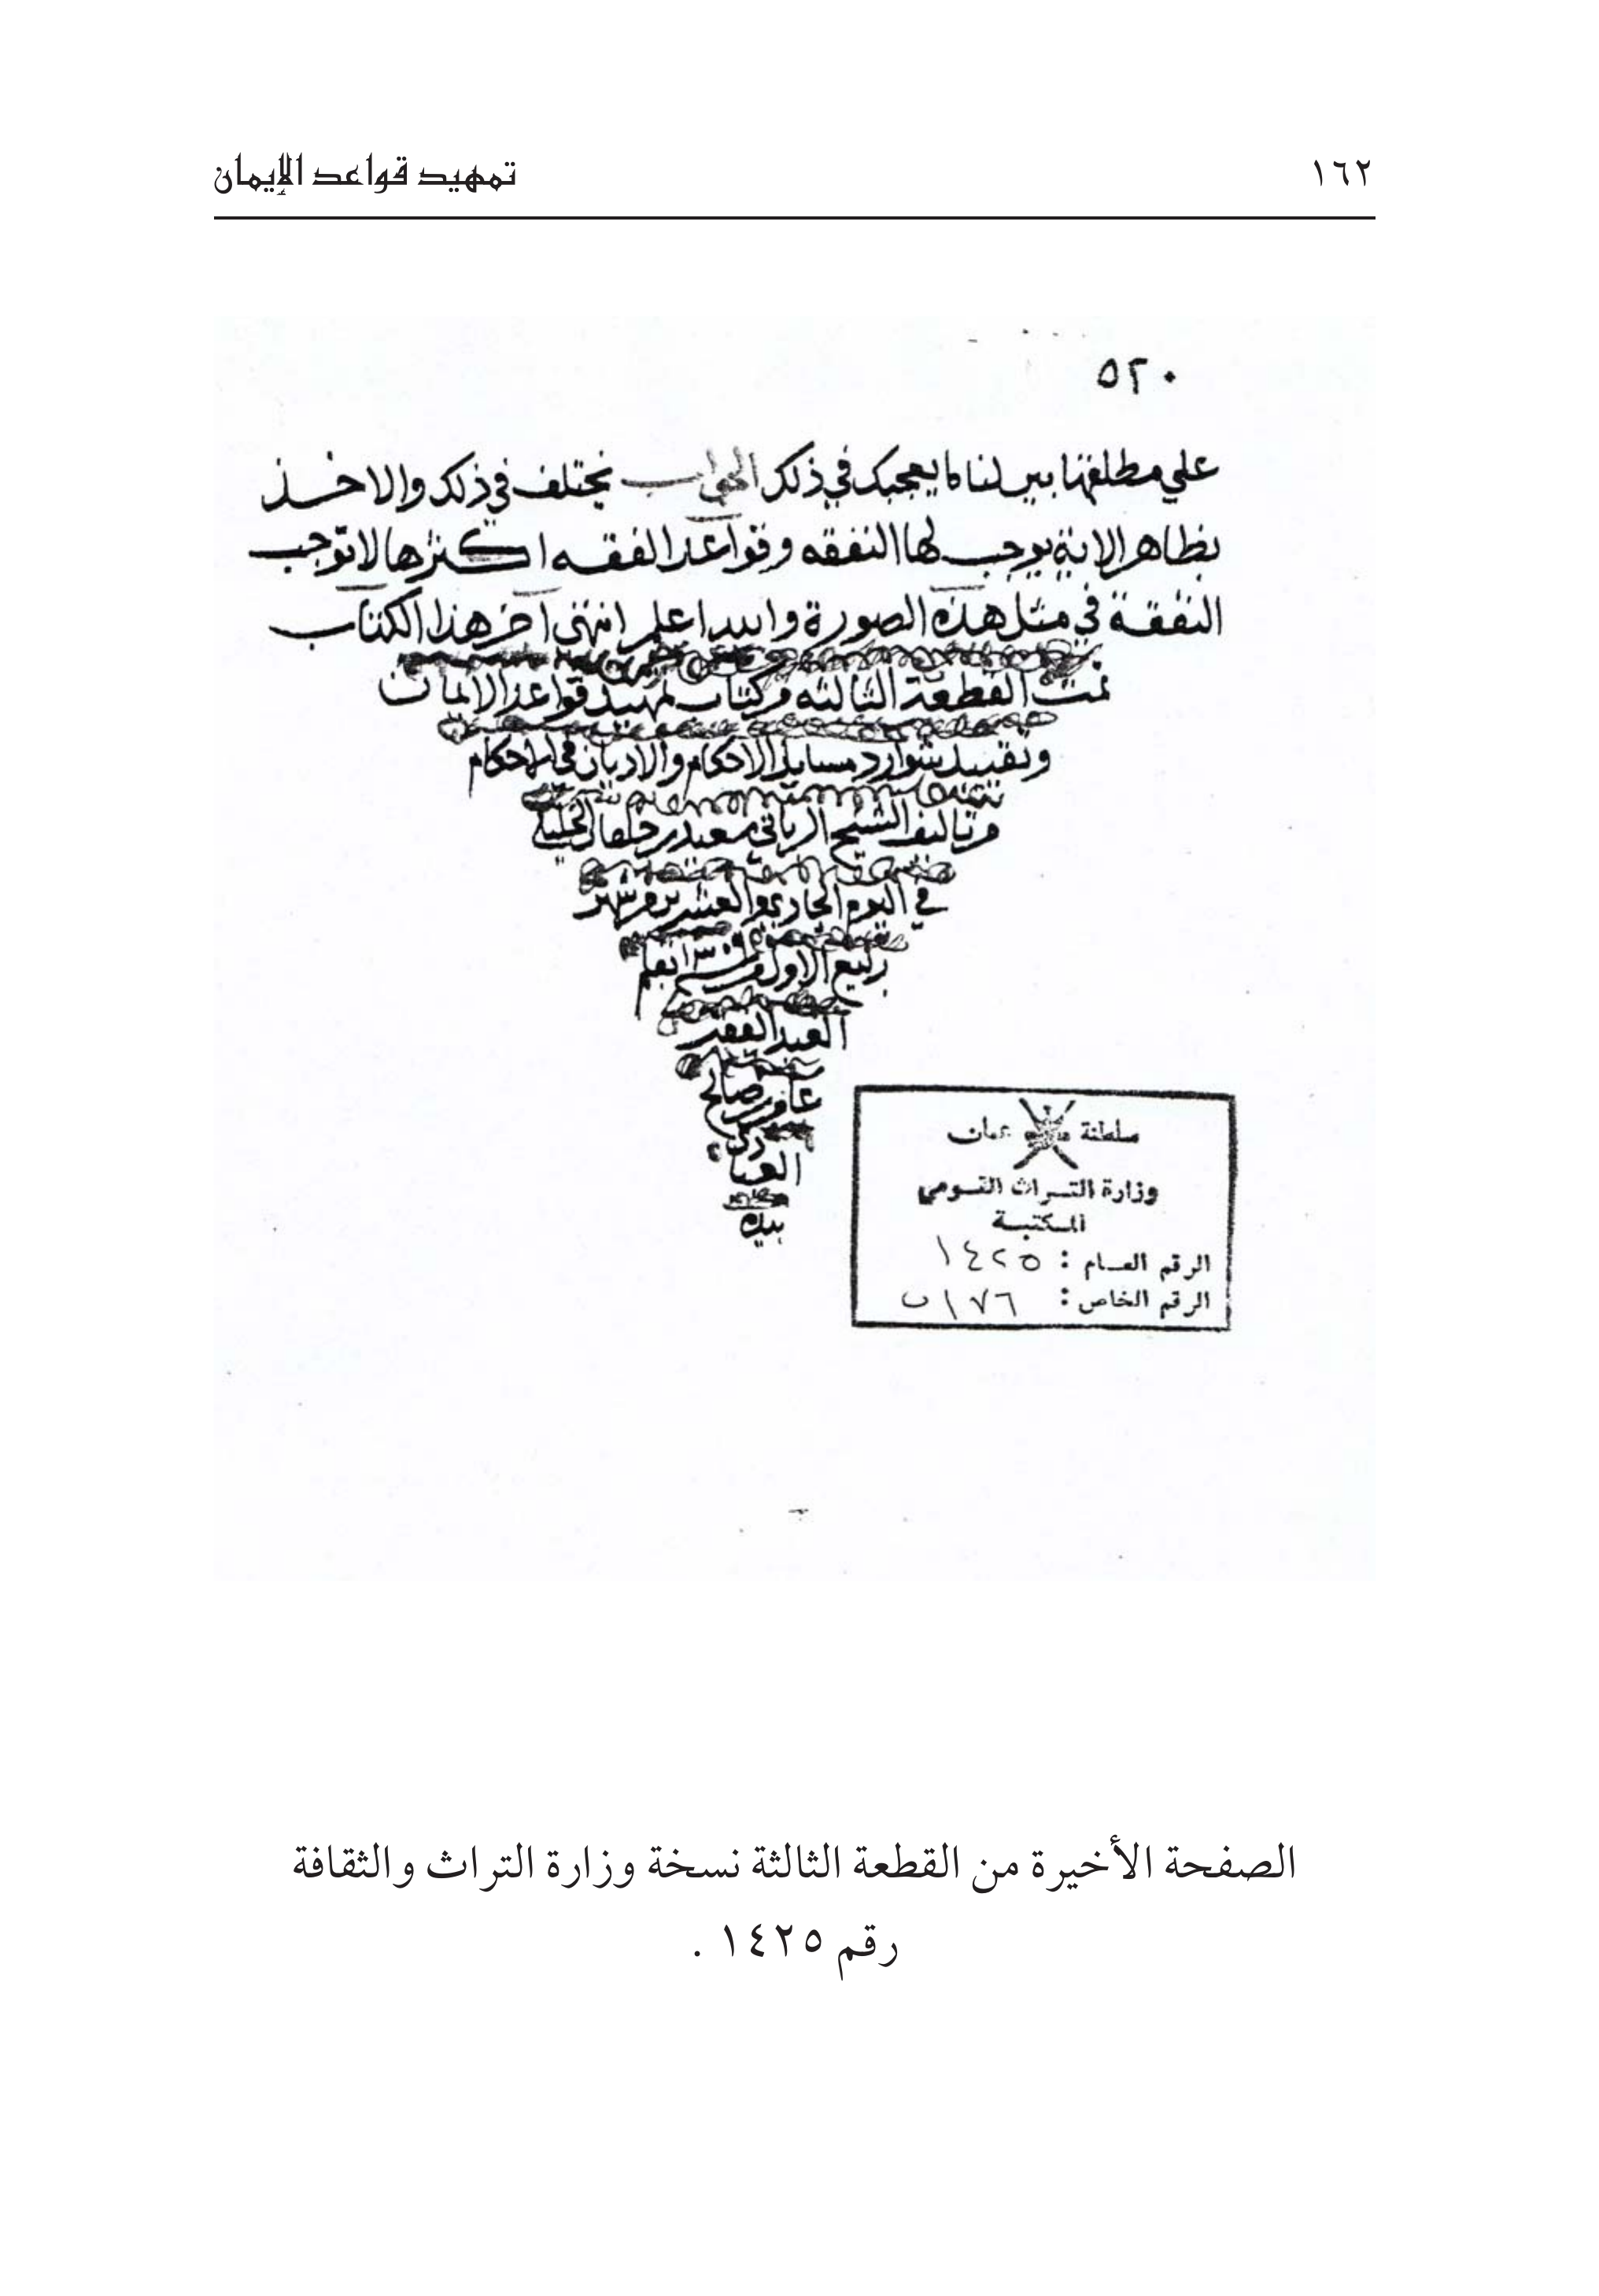 ١٦٢ تمهيد قواعد الإيمان
٥٢٠
علي مطلقها بين لنا ما يعجبك في ذلك الجواب يختلف في ذلك والاخذ
بظاهر الاية يوجب لها النفقه وقواعد الفقه اكثرها لا توجب
النفقة في مثل هذه الصورة والله اعلم انتهى آخر هذا الكتاب
تمت القطعة الثالثه من كتاب تمهيد قواعد الايمان
وتقييد شوارد مسايل الاحكام والاديان في الاحكام
من تاليف الشيخ الرباني سعيد بن خلفان الخليلي
في اليوم الحادي والعشرين من شهر
ربيع الاول من سنة بقلم
العبد الفقير
عامر بن صالح
بيده
سلطنة عمان
وزارة التراث القومي
المكتبة
الرقم العام : ١٤٢٥
الرقم الخاص : ١٧٦ ب
الصفحة الأخيرة من القطعة الثالثة نسخة وزارة التراث والثقافة
رقم ١٤٢٥ .